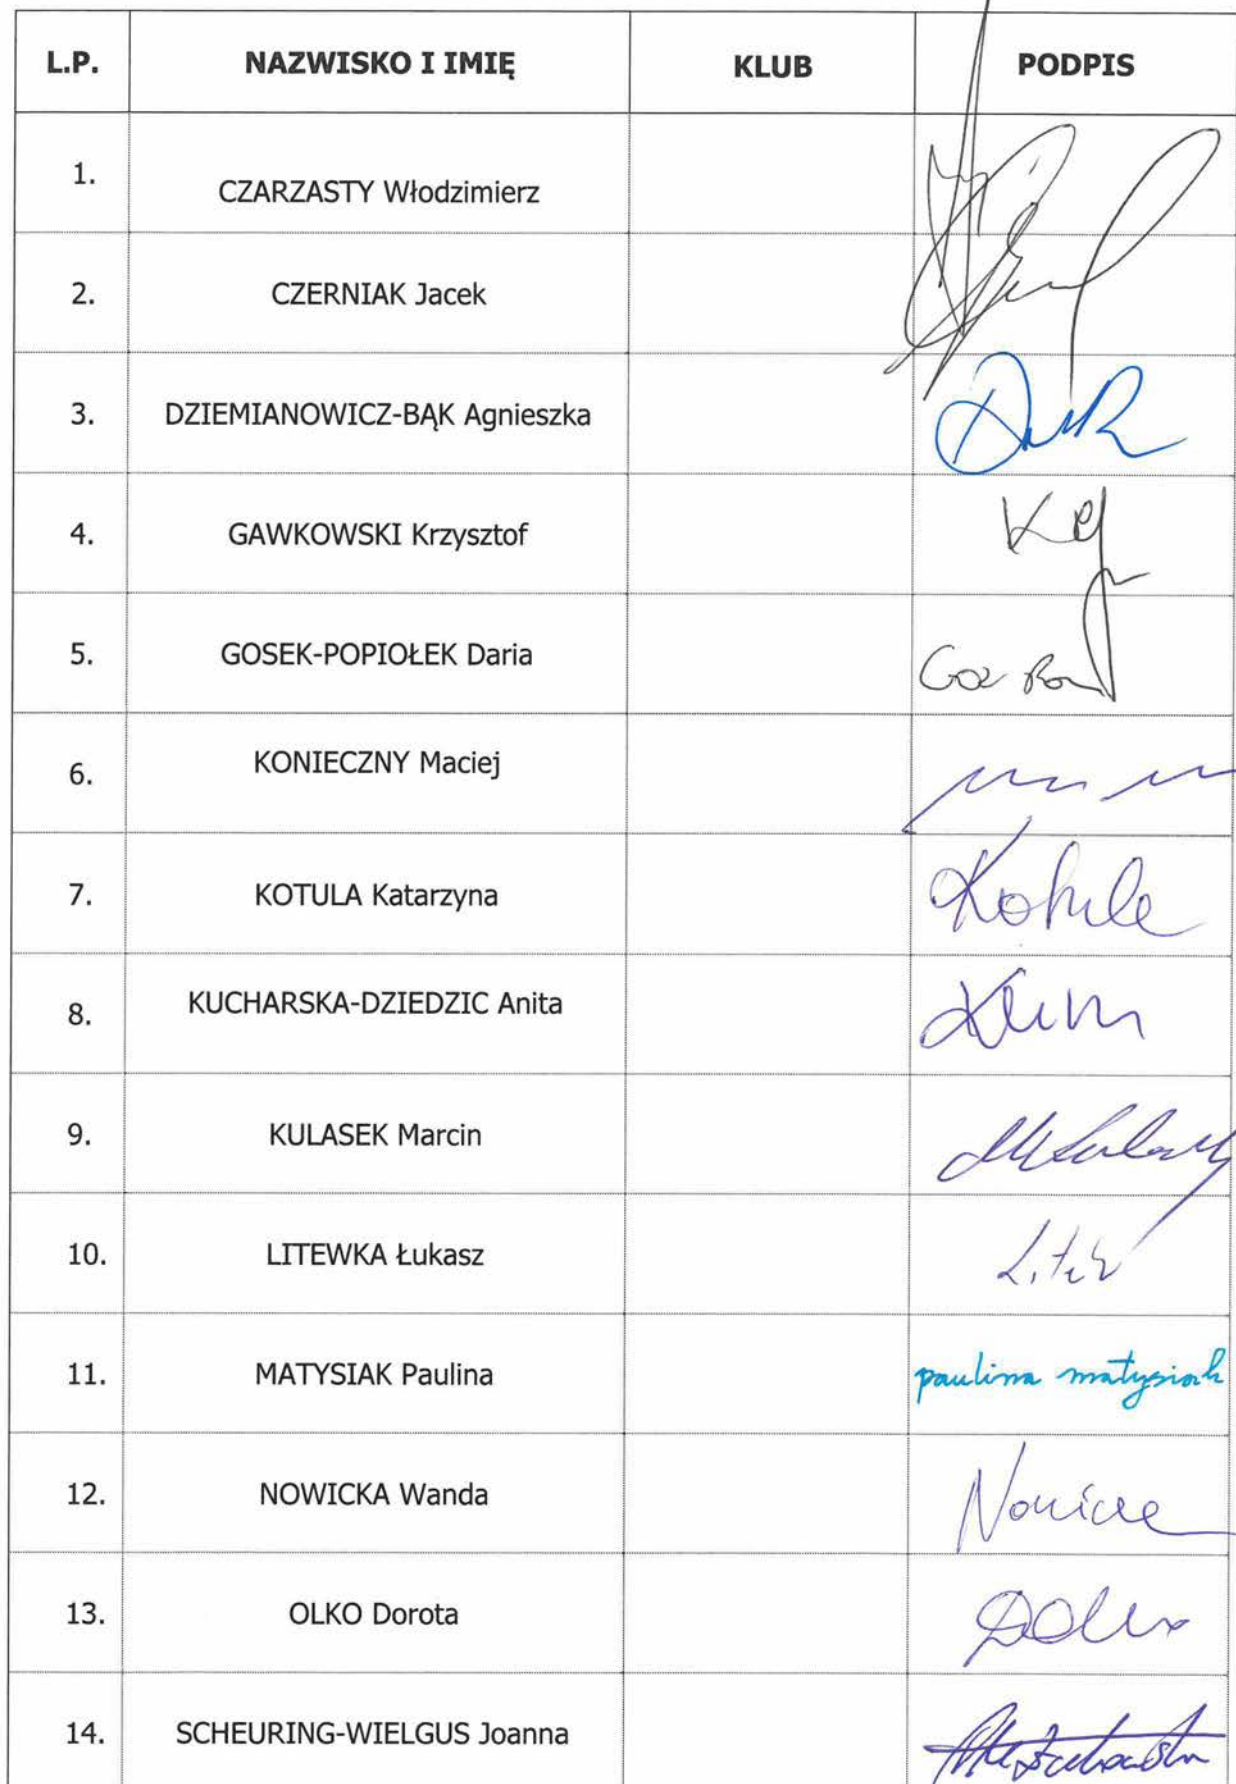 L.P. NAZWISKO I IMIĘ KLUB PODPIS
1. CZARZASTY Włodzimierz
2. CZERNIAK Jacek
3. DZIEMIANOWICZ-BĄK Agnieszka
4. GAWKOWSKI Krzysztof
5. GOSEK-POPIOŁEK Daria
6. KONIECZNY Maciej
7. KOTULA Katarzyna Kotula
8. KUCHARSKA-DZIEDZIC Anita
9. KULASEK Marcin
10. LITEWKA Łukasz
11. MATYSIAK Paulina paulina matysiak
12. NOWICKA Wanda
13. OLKO Dorota
14. SCHEURING-WIELGUS Joanna